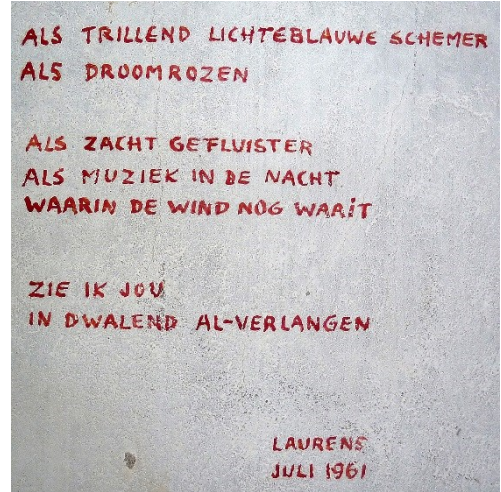 ALS TRILLEND LICHTEBLAUWE SCHEMER
ALS DROOMROZEN
ALS ZACHT GEFLUISTER
ALS MUZIEK IN DE NACHT
WAARIN DE WIND NOG WAAIT
ZIE IK JOU
IN DWALEND AL-VERLANGEN
LAURENS
JULI 1961